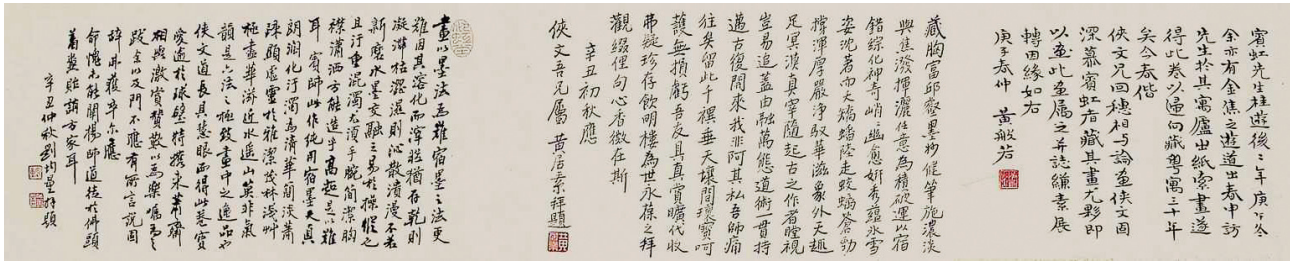 賓虹先生桂遊後之年庚午冬
余亦有金焦之遊道出春申訪
先生於其寓廬出紙索畫遂
得此卷以歸向藏粤寓三十年
矣今春偕
俠文兄回穗相与論畫俠文固
深慕賓虹者藏其畫尤夥即
以並此畫属之并誌縑素展
轉因緣如右
庚子春仲 黃般若
藏胸富邱壑墨妙健筆施濃淡
與焦潑揮灑任意為積破運以宿
錯綜化神奇峭嶮幽逾妍秀蘊冰雪
姿沈著而夭矯蟠陸走蛟螭蒼勁
渾厚嚴淨馭華滋象外天趣
足冥漠真宰隨起古之作者瞠視
豈易追蓋由融萬態道術一貫持
邁古復開來我非阿其私吾師痛
往矣留此千禩垂天壤間瓌寶呵
護無損虧吾友具真賞曠代收
弗疑珍存飲明樓為世永葆之拜
觀綴俚句心香徵在斯
辛丑初秋應
俠文吾兄屬 黃居素拜題
畫以墨法為難宿墨之法更
難因其溶化而滓猶存乾則
凝滯枯澀濕則沁散漬漫不若
新磨水墨交融之易於操縱之
且汙重混濁尤須手腕簡潔胸
襟瀟洒方能造乎高超是以難
耳賓師此作純用宿墨天真
朗潤化汙濁為清華簡淡蕭
踈顯虛靈於雅潔茂林淺艸
極盡華滋近水遥山莫非氣
韻是六法之極致畫中之逸品也
俠文道長具慧眼而得此卷寶
愛逾於球璧特攜來蕭齋
相與激賞贊歎以為樂囑為之
跋余以及門不應有所言說固
辭弗獲率尒應
命愧未能闡揚師道徒於佛頭
着糞貽誚方家耳
辛丑仲秋劉均量拜題